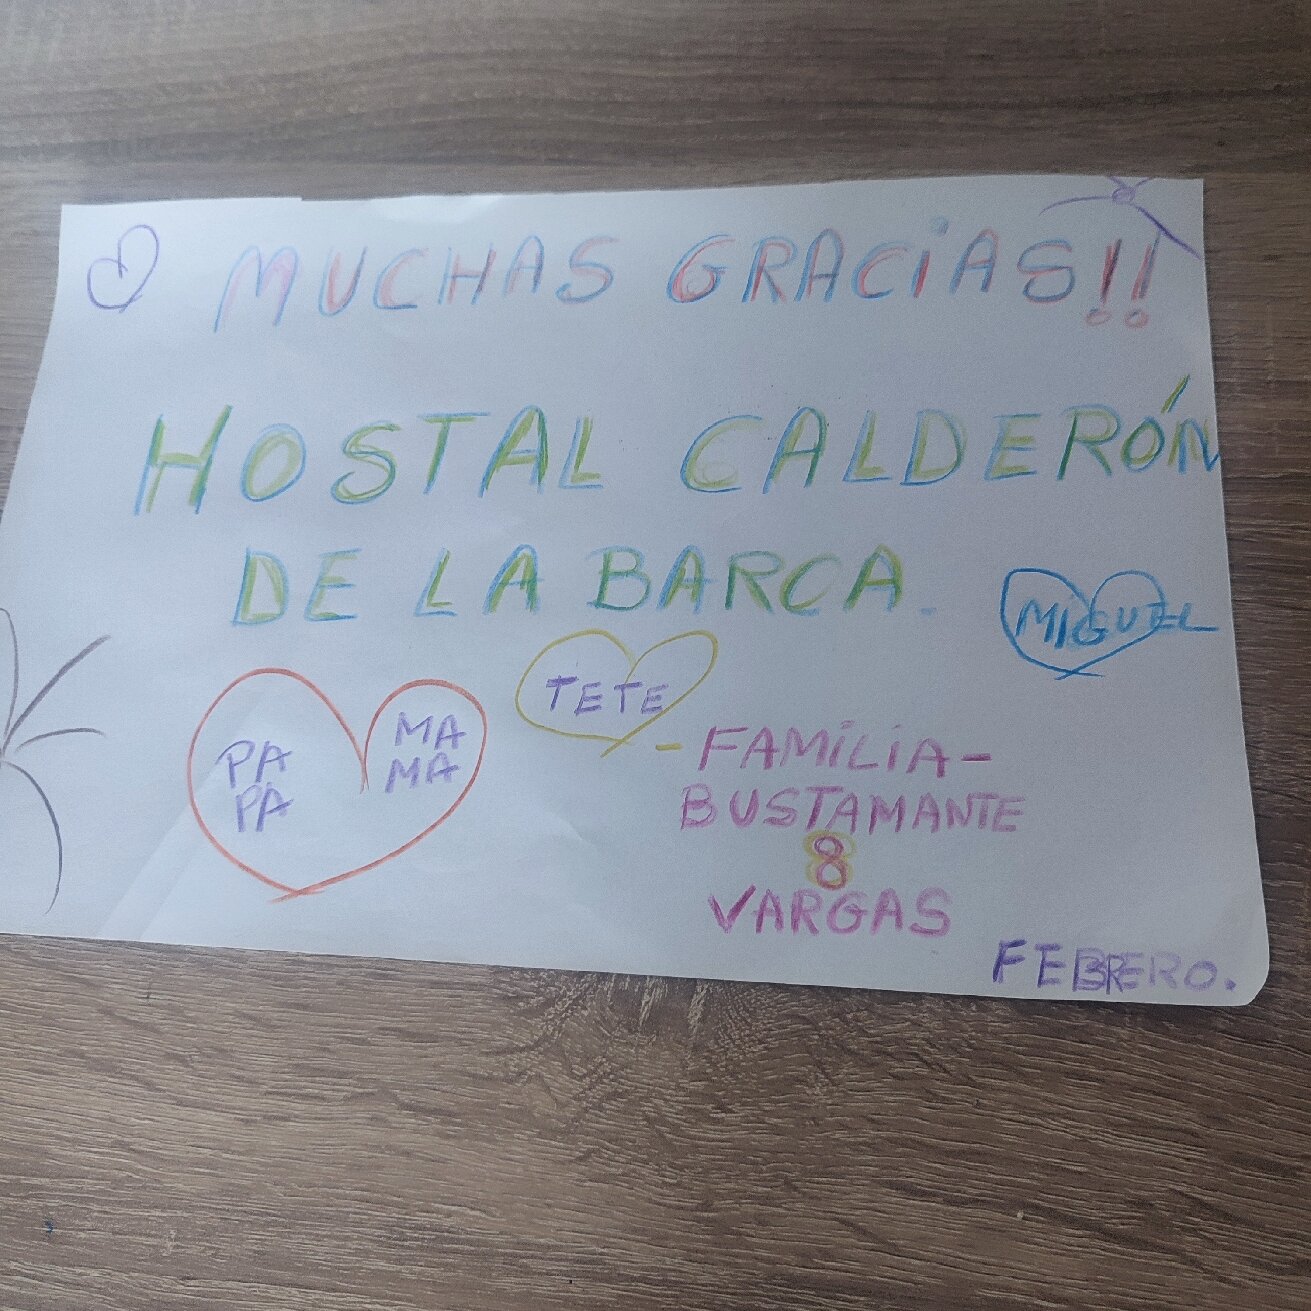 MUCHAS GRACIAS!!
HOSTAL CALDERÓN
DE LA BARCA.
MIGUEL
TETE
PA
PA
MA
MA
- FAMILIA -
BUSTAMANTE
8
VARGAS
FEBRERO.